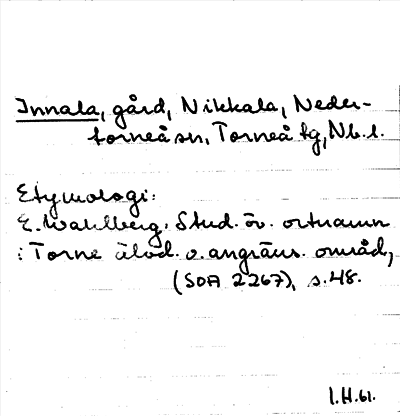 Innala, gård, Nikkala, Neder-
torneå sn, Torneå tg, Nb. l.
Etymologi:
E. Wahlberg, Stud. öv. ortnamn
i Torne älvd. o. angräns. områd,
(SOA 2267), s. 48.
I.H.61.